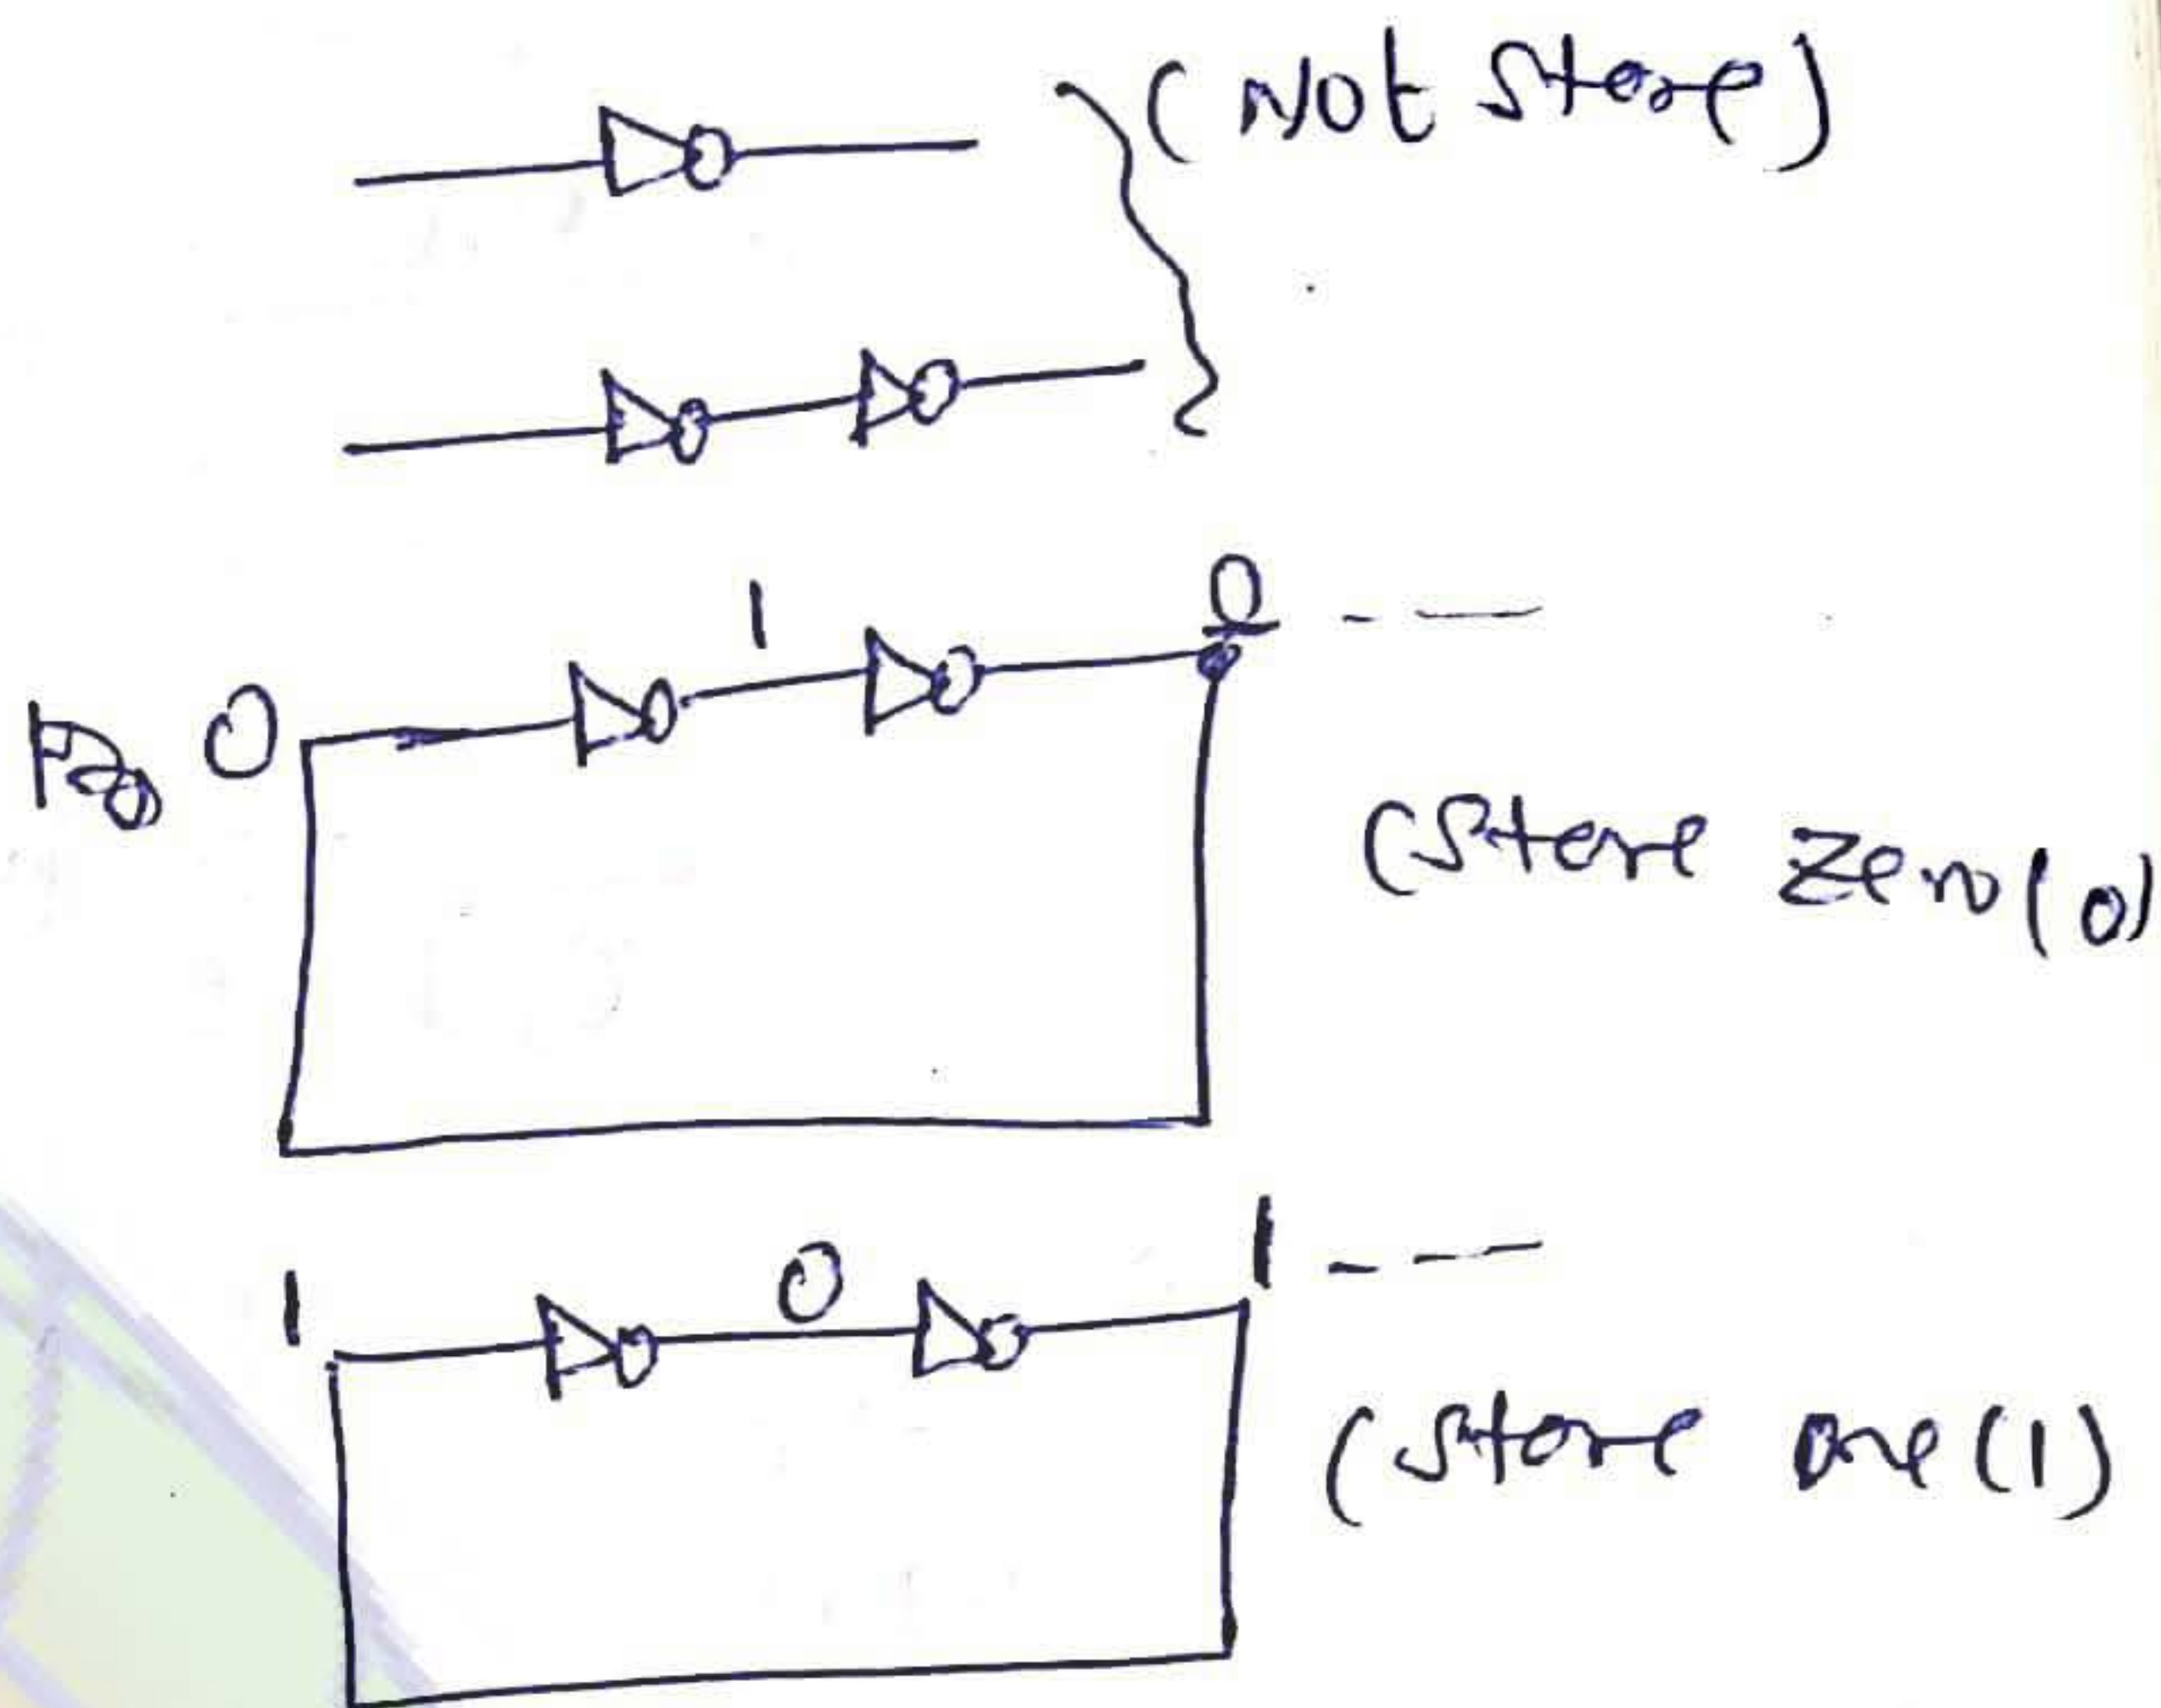 (Not Store)
1
0
0
(Store Zero(0)
1
0
1
(Store one(1)